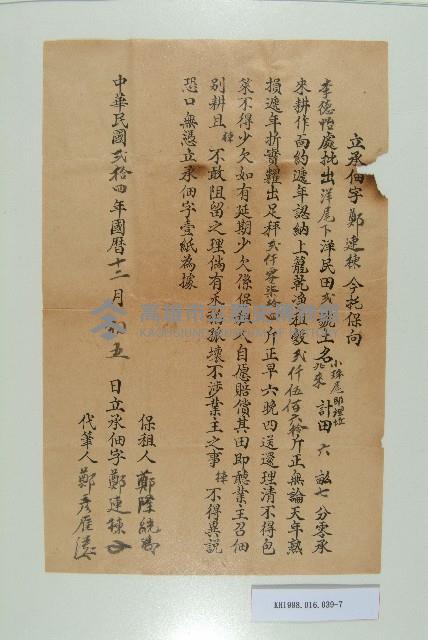 立承佃字鄭連棟今托保向
李德怡處批出洋尾下洋民田貳號土名小珠尾即埋垃計田六畝七分零承
來耕作面約遞年認納上籠乾漁租穀貳仟伍佰六拾斤正無論天年熟
損遞年折實糶出足秤貳仟零柒拾斤正早六晚四送還理清不得包
菜不得少欠如有延期少欠係保租人自愿賠償其田即聽業主召佃
別耕且棟不敢阻留之理倘有承招旅壞不涉業主之事棟不得異説
恐口無憑立承佃字壹紙為據
中華民國貳拾四年國曆十二月五日立承佃字鄭連棟
保租人鄭隆銃
代筆人鄭彥雁
高雄市立歷史博物館
KH1998.016.039-7